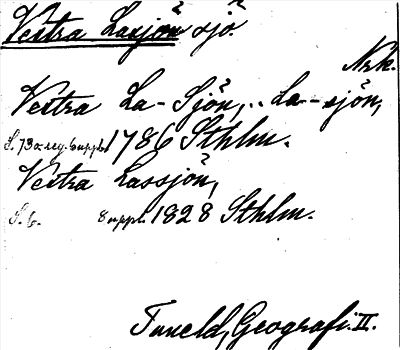 Vestra Lassjön sjö.
Nrk.
Vestra La-Sjön, .. La--sjön,
S. 73 o. reg. 6 uppl. 1786 Sthlm.
Vestra Lassjön,
S. 6. 8 uppl. 1828 Sthlm.
Tuneld, Geografi. II.